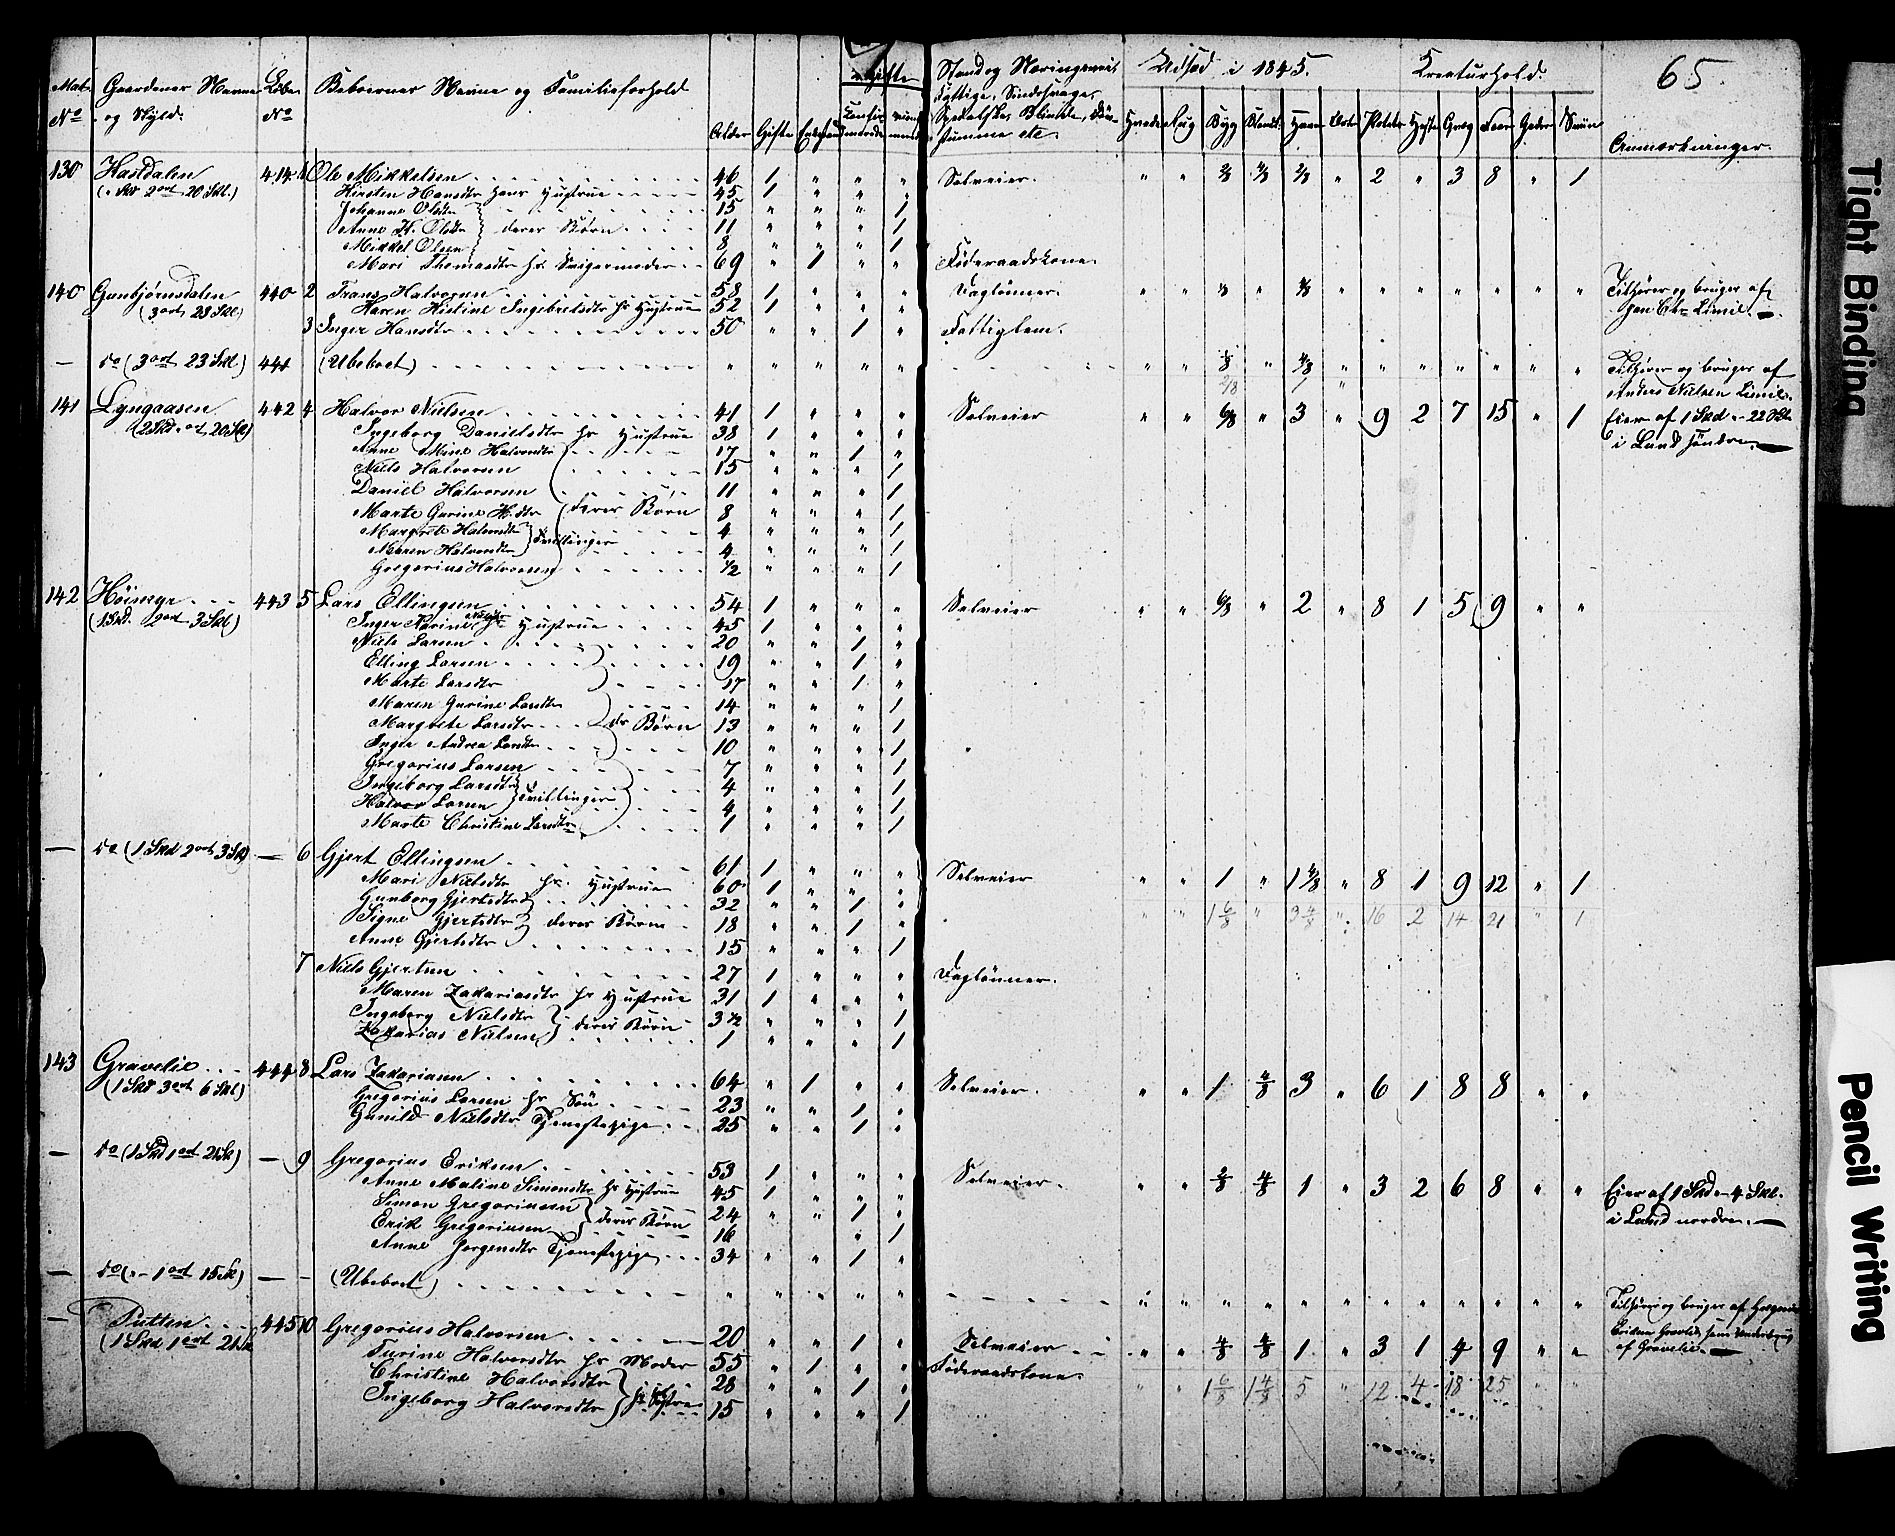 65.
Mat. No Gaardenes Navne og Skyld. Løbe No Beboernes Navne og Familieforhold Alder Gifte ugifte Stand og Næringsvei, Fattige, Sindssvage, Spedalske, Blinde, Døvstumme etc Udsæd i 1845. Kreaturhold. Anmærkninger.
Hvede Rug Byg Blandk. Havre Erter Poteter Heste Qvæg Faar Geder Sviin
130 Hastdalen 414 1 Ole Mikkelsen 46 1 " " " Selveier. " " 2 " 3 8 " 1
Kirsten Hansdtr hans Hustrue 45 1 " " "
Johanne Olsdtr 15 " " " 1
Anne K. Olsdtr deres Børn 11 " " " 1
Mikkel Olsen 8 " " " 1
Mari Thomasdtr hs Svigermoder 69 " 1 " " Föderaadskone.
140 Gunbjørnsdalen 440 2 Frans Halvorsen 58 1 " " " Daglönner. Tilhører og bruges af
(3 ort 23 Skl.) Karen Kistine Ingebretsdtr hs Hustrue 52 1 " " "
3 Inger Hansdtr 50 " " 1 " Fattiglem.
— do (3 ort 23 Skl) 441 (Ubeboet) " " " " " Tilhører og bruges af
Anders Nielsen
2/8 1 "
141 Lyngaasen 442 4 Halvor Nielsen 41 1 " " " Selveier " " 6/8 " 3 " 9 2 7 15 " 1 Eier af 1 Skd " 22 Skl
Ingeborg Danielsdtr hs Hustrue 38 1 " " " i Lund söndre.
Anne Mine Halvorsdtr 17 " " 1 "
Niels Halvorsen 15 " " " 1
Daniel Halvorsen 11 " " " 1
Marte Gurine H.dtr deres Børn 8 " " " 1
Margrete Halvorsdtr Tvillinger 4 " " " 1
Maren Halvorsdtr 4 " " " 1
Gregorius Halvorsen 1/2 " " " 1
142 Höimyr 443 5 Lars Ellingsen 54 1 " " " Selveier " " 6/8 " 2 " 8 1 5 9 " "
(1 Skd. 2 ort 3 Skl) Inger Karine Nielsdtr hs Hustrue 45 1 " " "
Niels Larsen 20 " " 1 "
Elling Larsen 19 " " 1 "
Marte Larsdtr 17 " " 1 "
Maren Gurine Larsdtr 14 " " " 1
Margrete Larsdtr ds Børn 13 " " " 1
Inger Andrea Larsdtr 10 " " " 1
Gregorius Larsen 7 " " " 1
Ingeborg Larsdtr Tvillinger 4 " " " 1
Halvor Larsen 4 " " " 1
Marte Christine Larsdtr 1 " " " 1
— do (1 Skd 2 ort 3 Skl) — 6 Gjert Ellingsen 61 1 " " " Selveier " " 1 " 1 4/8 " 8 1 9 12 " 1
Mari Nielsdtr hs. Hustrue 60 1 " " "
Gunborg Gjertsdtr 32 " " 1 " " " 1 6/8 " 3 4/8 " 16 2 14 21 " 1
Signe Gjertsdtr deres Børn 18 " " 1 "
Anne Gjertsdtr 15 " " " 1
7 Niels Gjertsen 27 1 " " " Daglönner.
Maren Zakariasdtr hs Hustrue 31 1 " " "
Ingeborg Nielsdtr deres Børn 3 1/2 " " " 1
Zakarias Nielsen 1 " " " 1
143 Gravelie 444 8 Lars Zakariasen 64 " 1 " " Selveier. " " 1 4/8 3 " 6 1 8 8 " "
(1 Skd 3 ort 6 Skl) Gregorius Larsen hs Sön 23 " " 1 "
Gunild Nielsdtr Tjenestepige 25 " " 1 "
— do (1 Skd 1 ort 21 Sk) — 9 Gregorius Eriksen 53 1 " " " Selveier. " " 2/8 4/8 1 " 3 2 6 8 " " Eier af 1 Skd " 4 Skl.
Anne Maline Simonsdtr hs Hustrue 45 1 " " " i Lund nordre.
Simon Gregoriussen deres Børn 24 " " 1 "
Erik Gregoriussen 16 " 1
Anne Jörgensdtr Tjenestepige 34 " " 1 "
— do (" 1 ort 15 Sk) — - (Ubeboet) " " " " " Tilhører og bruges af Gregorius
Eriksen Gravelie som Underbrug
— Putten 445 10 Gregorius Halvorsen 20 " " 1 " Selveier " " 4/8 4/8 1 " 3 1 4 9 " " af Gravelie.
(1 Skd 1 ort 21 Sk Turine Halvorsdtr hs Moder 55 " 1 " " Föderaadskone.
Christine Halvorsdtr hs Søstre 28 " " 1 " " " 1 6/8 1 4/8 5 " 12 4 18 25 " "
Ingeborg Halvorsdtr 15 " " " 1
Tight Binding
Pencil Writing